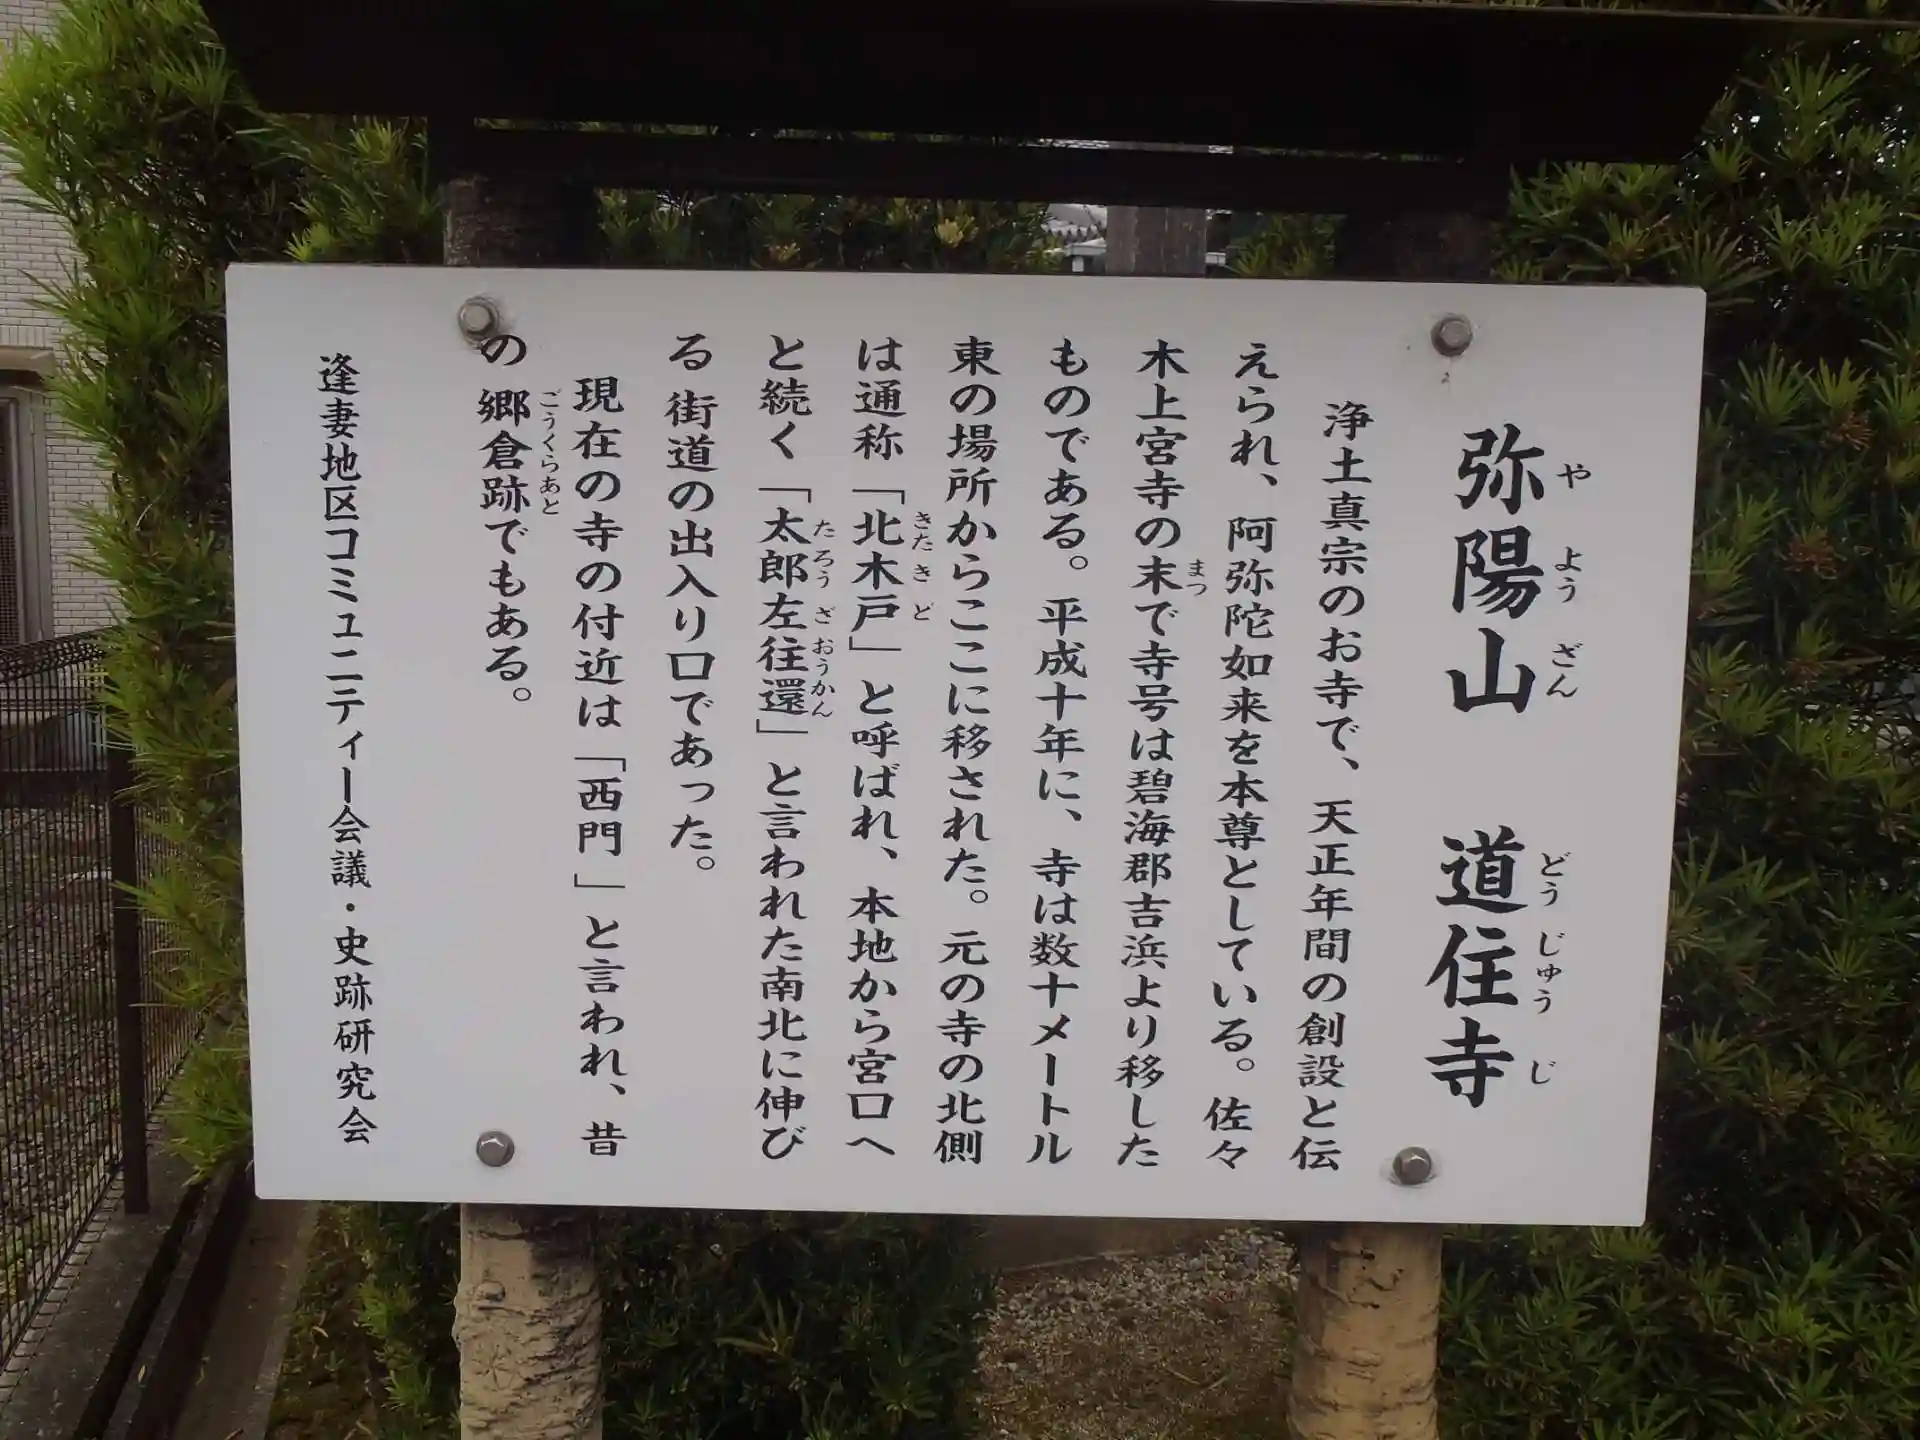 弥陽山 道住寺
やようざん どうじゅうじ
浄土真宗のお寺で、天正年間の創設と伝
えられ、阿弥陀如来を本尊としている。佐々
木上宮寺の末で寺号は碧海郡吉浜より移した
まつ
ものである。平成十年に、寺は数十メートル
東の場所からここに移された。元の寺の北側
は通称「北木戸」と呼ばれ、本地から宮口へ
きたきど
と続く「太郎左往還」と言われた南北に伸び
たろうざおうかん
る街道の出入り口であった。
現在の寺の付近は「西門」と言われ、昔
の郷倉跡でもある。
ごうくらあと
逢妻地区コミュニティー会議・史跡研究会